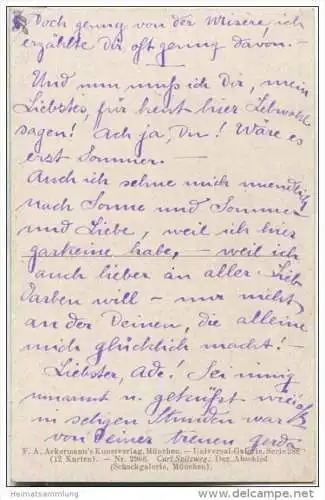 Doch genug von der Misere, ich
erzählte Dir oft genug davon. –
Und nun muß ich Dir, mein
Liebster, für heut hier Lebwohl
sagen! Ach ja, Du! Wäre es
erst Sommer. –
Auch ich sehne mich unendlich
nach Sonne und Sommer
und Liebe, weil ich hier
garkeine habe, – weil ich
auch lieber an aller Lieb
darben will – nur nicht
an der Deinen, die alleine
mich glücklich macht! –
Liebster, Ade! Sei innig
umarmt u. geküßt wie's
in seligen Stunden war
von Deiner treuen Gerda
F. A. Ackermann's Kunstverlag, München. — Universal-Galerie, Serie
(12 Karten). — Nr. 2966. Carl Spitzweg. Der Abschied
(Schackgalerie, München).
www.heimatsammlung.de